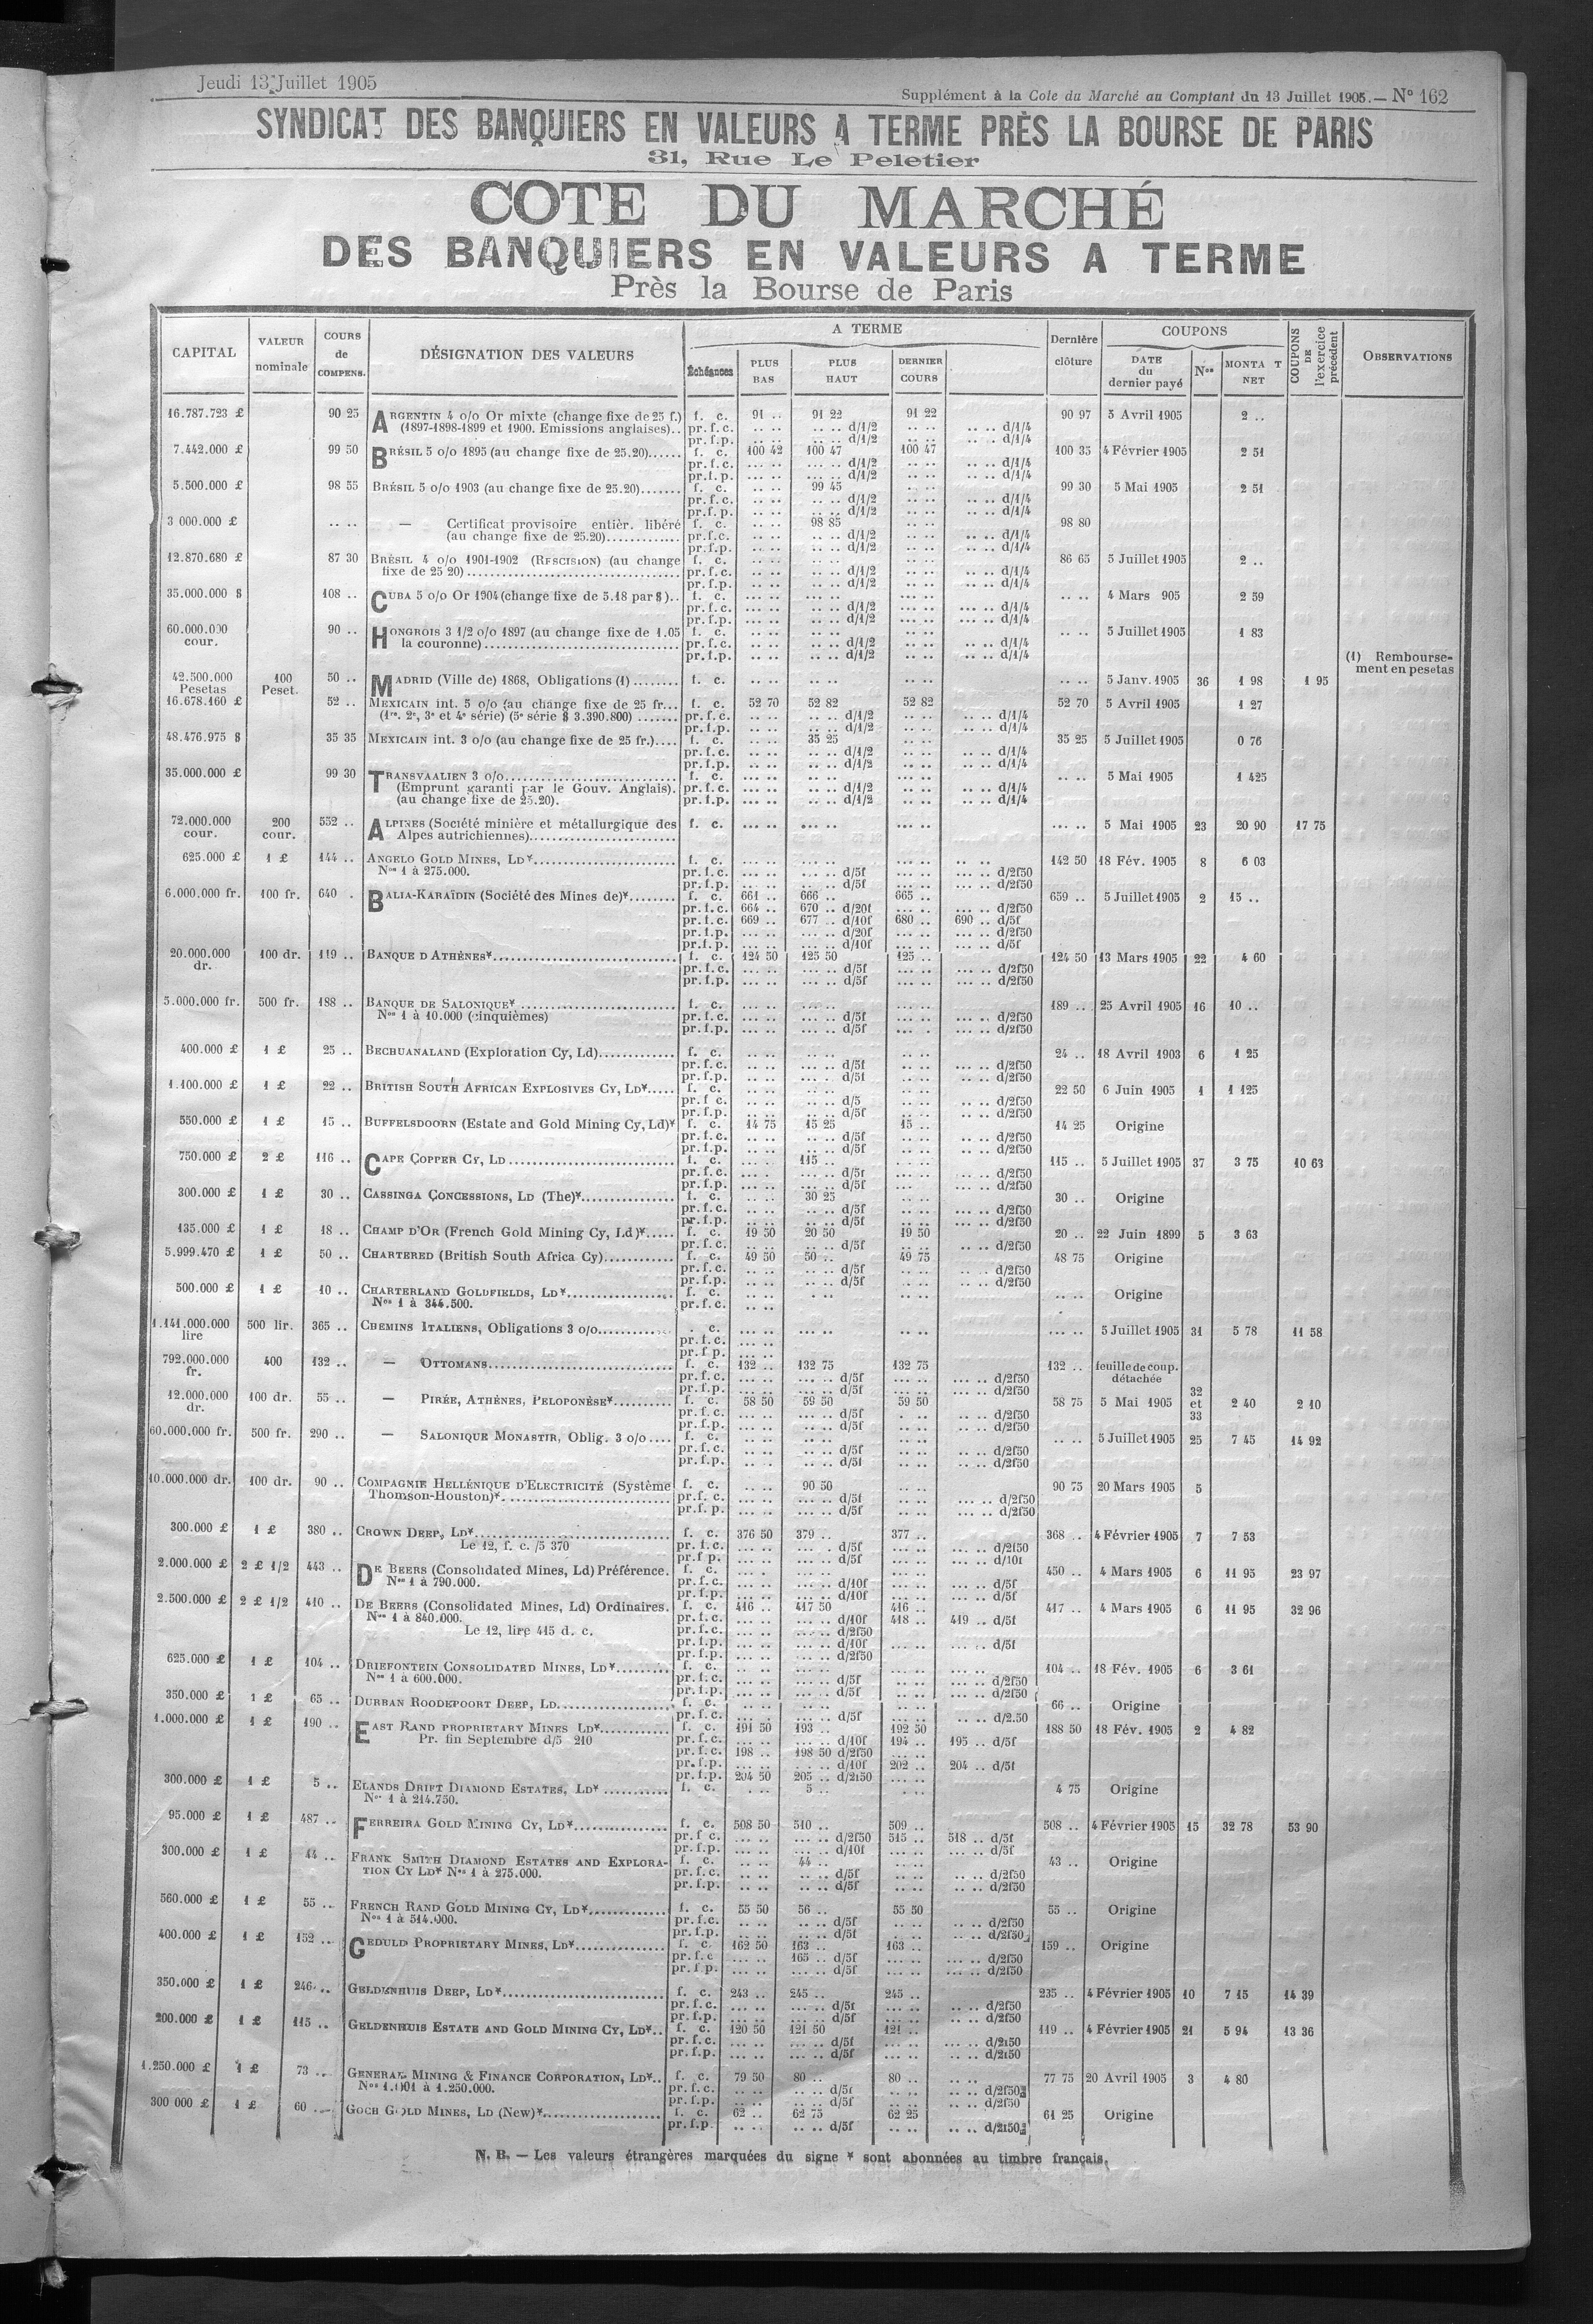 Jeudi 13 Juillet 1905
Supplément à la Cote du Marché au Comptant du 13 Juillet 1905. — N° 162
SYNDICAT DES BANQUIERS EN VALEURS A TERME PRÈS LA BOURSE DE PARIS
31, Rue Le Peletier
COTE DU MARCHÉ
DES BANQUIERS EN VALEURS A TERME
Près la Bourse de Paris
CAPITAL VALEUR nominale COURS de COMPENS. DÉSIGNATION DES VALEURS A TERME Échéances PLUS BAS PLUS HAUT DERNIER COURS Dernière clôture COUPONS DATE du dernier payé Nos MONTA T NET COUPONS DE l'exercice précédent OBSERVATIONS
16.787.723 £ 90 25 ARGENTIN 4 o/o Or mixte (change fixe de 25 f.) f. c. 91 .. 91 22 91 22 90 97 5 Avril 1905 2 ..
(1897-1898-1899 et 1900. Emissions anglaises).. pr. f. c. .. .. .. .. d/1/2 .. .. .. .. d/1/4
pr. f. p. .. .. .. .. d/1/2 .. .. .. .. d/1/4
7.442.000 £ 99 50 BRÉSIL 5 o/o 1895 (au change fixe de 25.20)...... f. c. 100 42 100 47 100 47 100 35 4 Février 1905 2 51
pr. f. c. ... .. ... .. d/1/2 ... .. .. .. d/1/4
pr. f. p. ... .. ... .. d/1/2 ... .. .. .. d/1/4
5.500.000 £ 98 55 BRÉSIL 5 o/o 1903 (au change fixe de 25.20)....... f. c. .. .. 99 45 .. .. 99 30 5 Mai 1905 2 51
pr. f. c. .. .. .. .. d/1/2 .. .. .. .. d/1/4
pr. f. p. .. .. .. .. d/1/2 .. .. .. .. d/1/4
3 000.000 £ .. .. — Certificat provisoire entièr. libéré f. c. .. .. 98 85 .. .. 98 80
(au change fixe de 25.20)............. pr. f. c. .. .. .. .. d/1/2 .. .. .. .. d/1/4
pr. f. p. .. .. .. .. d/1/2 .. .. .. .. d/1/4
12.870.680 £ 87 30 BRÉSIL 4 o/o 1901-1902 (RESCISION) (au change f. c. .. .. .. .. .. .. 86 65 5 Juillet 1905 2 ..
fixe de 25 20)............ pr. f. c. .. .. .. .. d/1/2 .. .. .. .. d/1/4
pr. f. p. .. .. .. .. d/1/2 .. .. .. .. d/1/4
35.000.000 $ 108 .. CUBA 5 o/o Or 1904 (change fixe de 5.18 par $).. f. c. ... .. ... .. ... .. .. .. 4 Mars 905 2 59
pr. f. c. ... .. .. .. d/1/2 ... .. ... .. d/1/4
pr. f. p. ... .. .. .. d/1/2 ... .. ... .. d/1/4
60.000.000 cour. 90 .. HONGROIS 3 1/2 o/o 1897 (au change fixe de 1.05 f. c. .. .. .. .. .. .. .. .. 5 Juillet 1905 1 83
la couronne)............ pr. f. c. .. .. .. .. d/1/2 .. .. .. .. d/1/4
pr. f. p. .. .. .. .. d/1/2 .. .. .. .. d/1/4
(1) Rembourse-
ment en pesetas
42.500.000 Pesetas 100 Peset. 50 .. MADRID (Ville de) 1868, Obligations (1)........ f. c. .. .. .. .. .. .. .. .. 5 Janv. 1905 36 1 98 1 95
16.678.160 £ 52 .. MEXICAIN int. 5 o/o (au change fixe de 25 fr... f. c. 52 70 52 82 52 82 52 70 5 Avril 1905 1 27
(1re, 2e, 3e et 4e série) (5e série $ 3.390.800) ....... pr. f. c. .. .. .. .. d/1/2 .. .. .. .. d/1/4
pr. f. p. .. .. .. .. d/1/2 .. .. .. .. d/1/4
48.476.975 $ 35 35 MEXICAIN int. 3 o/o (au change fixe de 25 fr.).... f. c. .. .. 35 25 .. .. 35 25 5 Juillet 1905 0 76
pr. f. c. .. .. .. .. d/1/2 .. .. .. .. d/1/4
pr. f. p. .. .. .. .. d/1/2 .. .. .. .. d/1/4
35.000.000 £ 99 30 TRANSVAALIEN 3 o/o............ f. c. ... .. ... .. ... .. .. .. 5 Mai 1905 1 425
(Emprunt garanti par le Gouv. Anglais). pr. f. c. ... .. ... .. d/1/2 ... .. .. .. d/1/4
(au change fixe de 25.20). pr. f. p. ... .. ... .. d/1/2 ... .. .. .. d/1/4
72.000.000 cour. 200 cour. 552 .. ALPINES (Société minière et métallurgique des f. c. ... .. ... .. ... .. ... .. 5 Mai 1905 23 20 90 17 75
Alpes autrichiennes)............
625.000 £ 1 £ 144 .. ANGELO GOLD MINES, LD*............ f. c. ... .. ... .. ... .. .. .. 142 50 18 Fév. 1905 8 6 03
Nos 1 à 275.000. pr. f. c. ... .. ... .. d/5f ... .. ... .. d/2f50
pr. f. p. ... .. ... .. d/5f ... .. ... .. d/2f50
6.000.000 fr. 100 fr. 640 . BALIA-KARAÏDIN (Société des Mines de)*........ f. c. 661 .. 666 .. 665 .. 659 .. 5 Juillet 1905 2 15 ..
pr. f. c. 664 .. 670 .. d/20f ... .. ... .. d/2f50
pr. f. c. 669 .. 677 .. d/10f 680 .. 690 .. d/5f
pr. f. p. ... .. ... .. d/20f ... .. ... .. d/2f50
pr. f. p. ... .. ... .. d/10f ... .. ... .. d/5f
20.000.000 dr. 100 dr. 119 .. BANQUE D ATHÈNES*............ f. c. 124 50 125 50 125 .. 124 50 13 Mars 1905 22 4 60
pr. f. c. ... .. ... .. d/5f ... .. ... .. d/2f50
pr. f. p. ... .. ... .. d/5f ... .. ... .. d/2f50
5.000.000 fr. 500 fr. 188 .. BANQUE DE SALONIQUE*............ f. c. ... .. ... .. ... .. 189 .. 25 Avril 1905 16 10 ..
Nos 1 à 10.000 (cinquièmes) pr. f. c. ... .. ... .. d/5f ... .. ... .. d/2f50
pr. f. p. ... .. ... .. d/5f ... .. ... .. d/2f50
400.000 £ 1 £ 25 .. BECHUANALAND (Exploration Cy, Ld)............. f. c. .. .. .. .. .. .. 24 .. 18 Avril 1903 6 1 25
pr. f. c. .. .. .. .. d/5f .. .. .. .. d/2f50
pr. f. p. .. .. .. .. d/5f .. .. .. .. d/2f50
1.100.000 £ 1 £ 22 .. BRITISH SOUTH AFRICAN EXPLOSIVES CY, LD*..... f. c. .. .. .. .. .. .. 22 50 6 Juin 1905 1 1 125
pr. f c. .. .. .. .. d/5 .. .. ... .. d/2f50
pr. f. p. .. .. .. .. d/5f .. .. ... .. d/2f50
550.000 £ 1 £ 15 .. BUFFELSDOORN (Estate and Gold Mining Cy, Ld)* f. c. 14 75 15 25 15 .. 14 25 Origine
pr. f. c. .. .. .. .. d/5f .. .. .. .. d/2f50
pr. f. p. .. .. .. .. d/5f .. .. .. .. d/2f50
750.000 £ 2 £ 116 .. CAPE COPPER CY, LD............ f. c. ... . 115 .. ... .. 115 .. 5 Juillet 1905 37 3 75 10 63
pr. f. c. ... .. ... .. d/5f ... .. ... .. d/2f50
pr. f. p. ... .. ... .. d/5f ... .. ... .. d/2f50
300.000 £ 1 £ 30 .. CASSINGA CONCESSIONS, LD (The)*............ f. c. .. .. 30 25 .. .. 30 .. Origine
pr. f. c. .. .. .. .. d/5f .. .. ... .. d/2f50
pr. f. p. .. .. .. .. d/5f .. .. ... .. d/2f50
135.000 £ 1 £ 18 .. CHAMP D'OR (French Gold Mining Cy, Ld)*..... f. c. 19 50 20 50 19 50 20 .. 22 Juin 1899 5 3 63
pr. f. c. .. .. .. .. d/5f .. .. .. .. d/2f50
5.999.470 £ 1 £ 50 .. CHARTERED (British South Africa Cy)............ f. c. 49 50 50 .. 49 75 48 75 Origine
pr. f. c. .. .. .. .. d/5f .. .. .. .. d/2f50
pr. f. p. .. .. .. .. d/5f .. .. .. .. d/2f50
500.000 £ 1 £ 10 .. CHARTERLAND GOLDFIELDS, LD*............ f. c. .. .. . .. .. .. .. .. Origine
Nos 1 à 344.500. pr. f. c. .. ..
1.141.000.000 lire 500 lir. 365 .. CHEMINS ITALIENS, Obligations 3 o/o............ . c. ... .. ... .. .. .. ... .. 5 Juillet 1905 31 5 78 11 58
pr. f. c. ... ..
pr. f p. ... ..
792.000.000 fr. 400 132 .. — OTTOMANS............ f. c. 132 .. 132 75 132 75 132 .. feuille de coup. détachée
pr. f. c. ... .. ... .. d/5f ... .. ... .. d/2f50
pr. f. p. ... .. ... .. d/5f ... .. ... .. d/2f50
12.000.000 dr. 100 dr. 55 .. — PIRÉE, ATHÈNES, PELOPONÈSE*.......... f. c. 58 50 59 50 59 50 58 75 5 Mai 1905 32 et 33 2 40 2 10
pr. f. c. .. .. ... .. d/5f . .. .. .. d/2f50
pr. f. p. .. .. ... .. d/5f .. .. .. .. d/2f50
60.000.000 fr. 500 fr. 290 .. — SALONIQUE MONASTIR, Oblig. 3 o/o.... f. c. .. .. .. .. .. .. .. .. 5 Juillet 1905 25 7 45 14 92
pr. f. c. .. .. ... .. d/5f .. .. .. .. d/2f50
pr. f. p. .. .. ... .. d/5f .. .. .. .. d/2f50
10.000.000 dr. 100 dr. 90 .. COMPAGNIE HELLÉNIQUE D'ELECTRICITÉ (Système f. c. .. .. 90 50 .. .. 90 75 20 Mars 1905 5
Thomson-Houston)*............ pr. f. c. ... .. ... .. d/5f ... .. ... .. d/2f50
pr. f. p. ... .. ... .. d/5f ... .. ... .. d/2f50
300.000 £ 1 £ 380 .. CROWN DEEP, LD*............ f. c. 376 50 379 .. 377 .. 368 .. 4 Février 1905 7 7 53
Le 12, f. c. /5 370 pr. f. c. ... .. ... . d/5f ... .. ... .. d/2f50
pr. f p. ... .. ... .. d/5f ... .. ... .. d/10f
2.000.000 £ 2 £ 1/2 443 .. DE BEERS (Consolidated Mines, Ld) Préférence. f. c. ... . ... .. ... .. 450 .. 4 Mars 1905 6 11 95 23 97
Nos 1 à 790.000. pr. f. c. ... .. ... .. d/10f ... .. ... .. d/5f
pr. f. p. ... .. ... .. d/10f ... .. ... .. d/5f
2.500.000 £ 2 £ 1/2 410 .. DE BEERS (Consolidated Mines, Ld) Ordinaires. f. c. 416 .. 417 50 416 .. 417 .. 4 Mars 1905 6 11 95 32 96
Nos 1 à 840.000. pr. f. c. ... .. ... .. d/10f 418 .. 419 .. d/5f
Le 12, lire 415 d. c. pr. f. c. ... .. ... .. d/2f50
pr. f. p. ... .. ... .. d/10f ... .. ... .. d/5f
pr. f. p. ... .. ... .. d/2f50
625.000 £ 1 £ 104 .. DRIEFONTEIN CONSOLIDATED MINES, LD*......... f. c. .. .. ... .. .. .. ... .. 104 .. 18 Fév. 1905 6 3 61
Nos 1 à 600.000. pr. f. c. .. .. ... .. d/5f .. .. ... .. d/2f50
pr. f. p. .. .. ... .. d/5f .. .. ... .. d/2f50
350.000 £ 1 £ 65 .. DURBAN ROODEPOORT DEEP, LD............ f. c. .. .. .. .. .. .. 66 .. Origine
pr. f. c. .. .. ... .. d/5f .. .. .. .. d/2.50
1.000.000 £ 1 £ 190 .. EAST RAND PROPRIETARY MINES LD*............ f. c. 191 50 193 .. 192 50 188 50 18 Fév. 1905 2 4 82
Pr. fin Septembre d/5 210 pr. f. c. ... .. ... .. d/10f 194 .. 195 .. d/5f
pr. f. c. 198 .. 198 50 d/2f50 ... ..
pr. f. p. ... .. . .. d/10f 202 .. 204 .. d/5f
pr. f. p. 204 50 205 .. d/2f50 ... ..
300.000 £ 1 £ 5 .. ELANDS DRIFT DIAMOND ESTATES, LD*............ f. c. . .. 5 .. .. .. 4 75 Origine
Nos 1 à 214.750.
95.000 £ 1 £ 487 .. FERREIRA GOLD MINING CY, LD*............ f. c. 508 50 510 .. 509 .. 508 .. 4 Février 1905 15 32 78 53 90
pr. f c. ... .. ... .. d/2f50 515 .. 518 .. d/5f
pr. f. p. ... .. ... .. d/10f ... .. ... .. d/5f
300.000 £ 1 £ 44 .. FRANK SMITH DIAMOND ESTATES AND EXPLORA- f. c. .. .. 44 .. .. .. 43 .. Origine
TION CY LD* Nos 1 à 275.000. pr. f. c. .. .. .. .. d/5f .. .. .. .. d/2f50
pr. f. p. .. .. .. .. d/5f .. .. .. .. d/2f50
560.000 £ 1 £ 55 .. FRENCH RAND GOLD MINING CY, LD*............ f. c. 55 50 56 .. 55 50 55 .. Origine
Nos 1 à 514.000. pr. f. c. .. .. .. .. d/5f .. .. .. .. d/2f50
pr. f. p. .. .. .. .. d/5f .. .. .. .. d/2f50
400.000 £ 1 £ 152 .. GEDULD PROPRIETARY MINES, LD*............ f. c. 162 50 163 .. 163 .. 159 .. Origine
pr. f. c ... .. 165 .. d/5f ... .. ... .. d/2f50
pr. f p. ... .. ... .. d/5f ... .. ... .. d/2f50
350.000 £ 1 £ 246 .. GELDENHUIS DEEP, LD*............ f. c. 243 .. 245 .. 245 .. 235 .. 4 Février 1905 10 7 15 14 39
pr. f. c. ... .. ... .. d/5f ... .. .. .. d/2f50
pr. f. p. ... .. ... .. d/5f ... .. .. .. d/2f50
200.000 £ 1 £ 115 .. GELDENHUIS ESTATE AND GOLD MINING CY, LD*.. f. c. 120 50 121 50 121 .. 119 .. 4 Février 1905 21 5 94 13 36
pr. f. c. ... .. ... .. d/5f ... .. ... .. d/2f50
pr. f. p. ... .. ... .. d/5f ... .. ... .. d/2f50
1.250.000 £ 1 £ 73 .. GENERAL MINING & FINANCE CORPORATION, LD*.. f. c. 79 50 80 .. 80 .. .. .. 77 75 20 Avril 1905 3 4 80
Nos 1.001 à 1.250.000. pr. f. c. .. .. .. .. d/5f .. .. .. .. d/2f50
pr. f. p. .. .. .. .. d/5f .. .. .. .. d/2f50
300 000 £ 1 £ 60 .. GOCH GOLD MINES, LD (New)*............ f. c. 62 .. 62 75 62 25 61 25 Origine
pr. f. p. .. .. .. .. d/5f .. .. .. .. d/2f50
N. B. — Les valeurs étrangères marquées du signe * sont abonnées au timbre français.